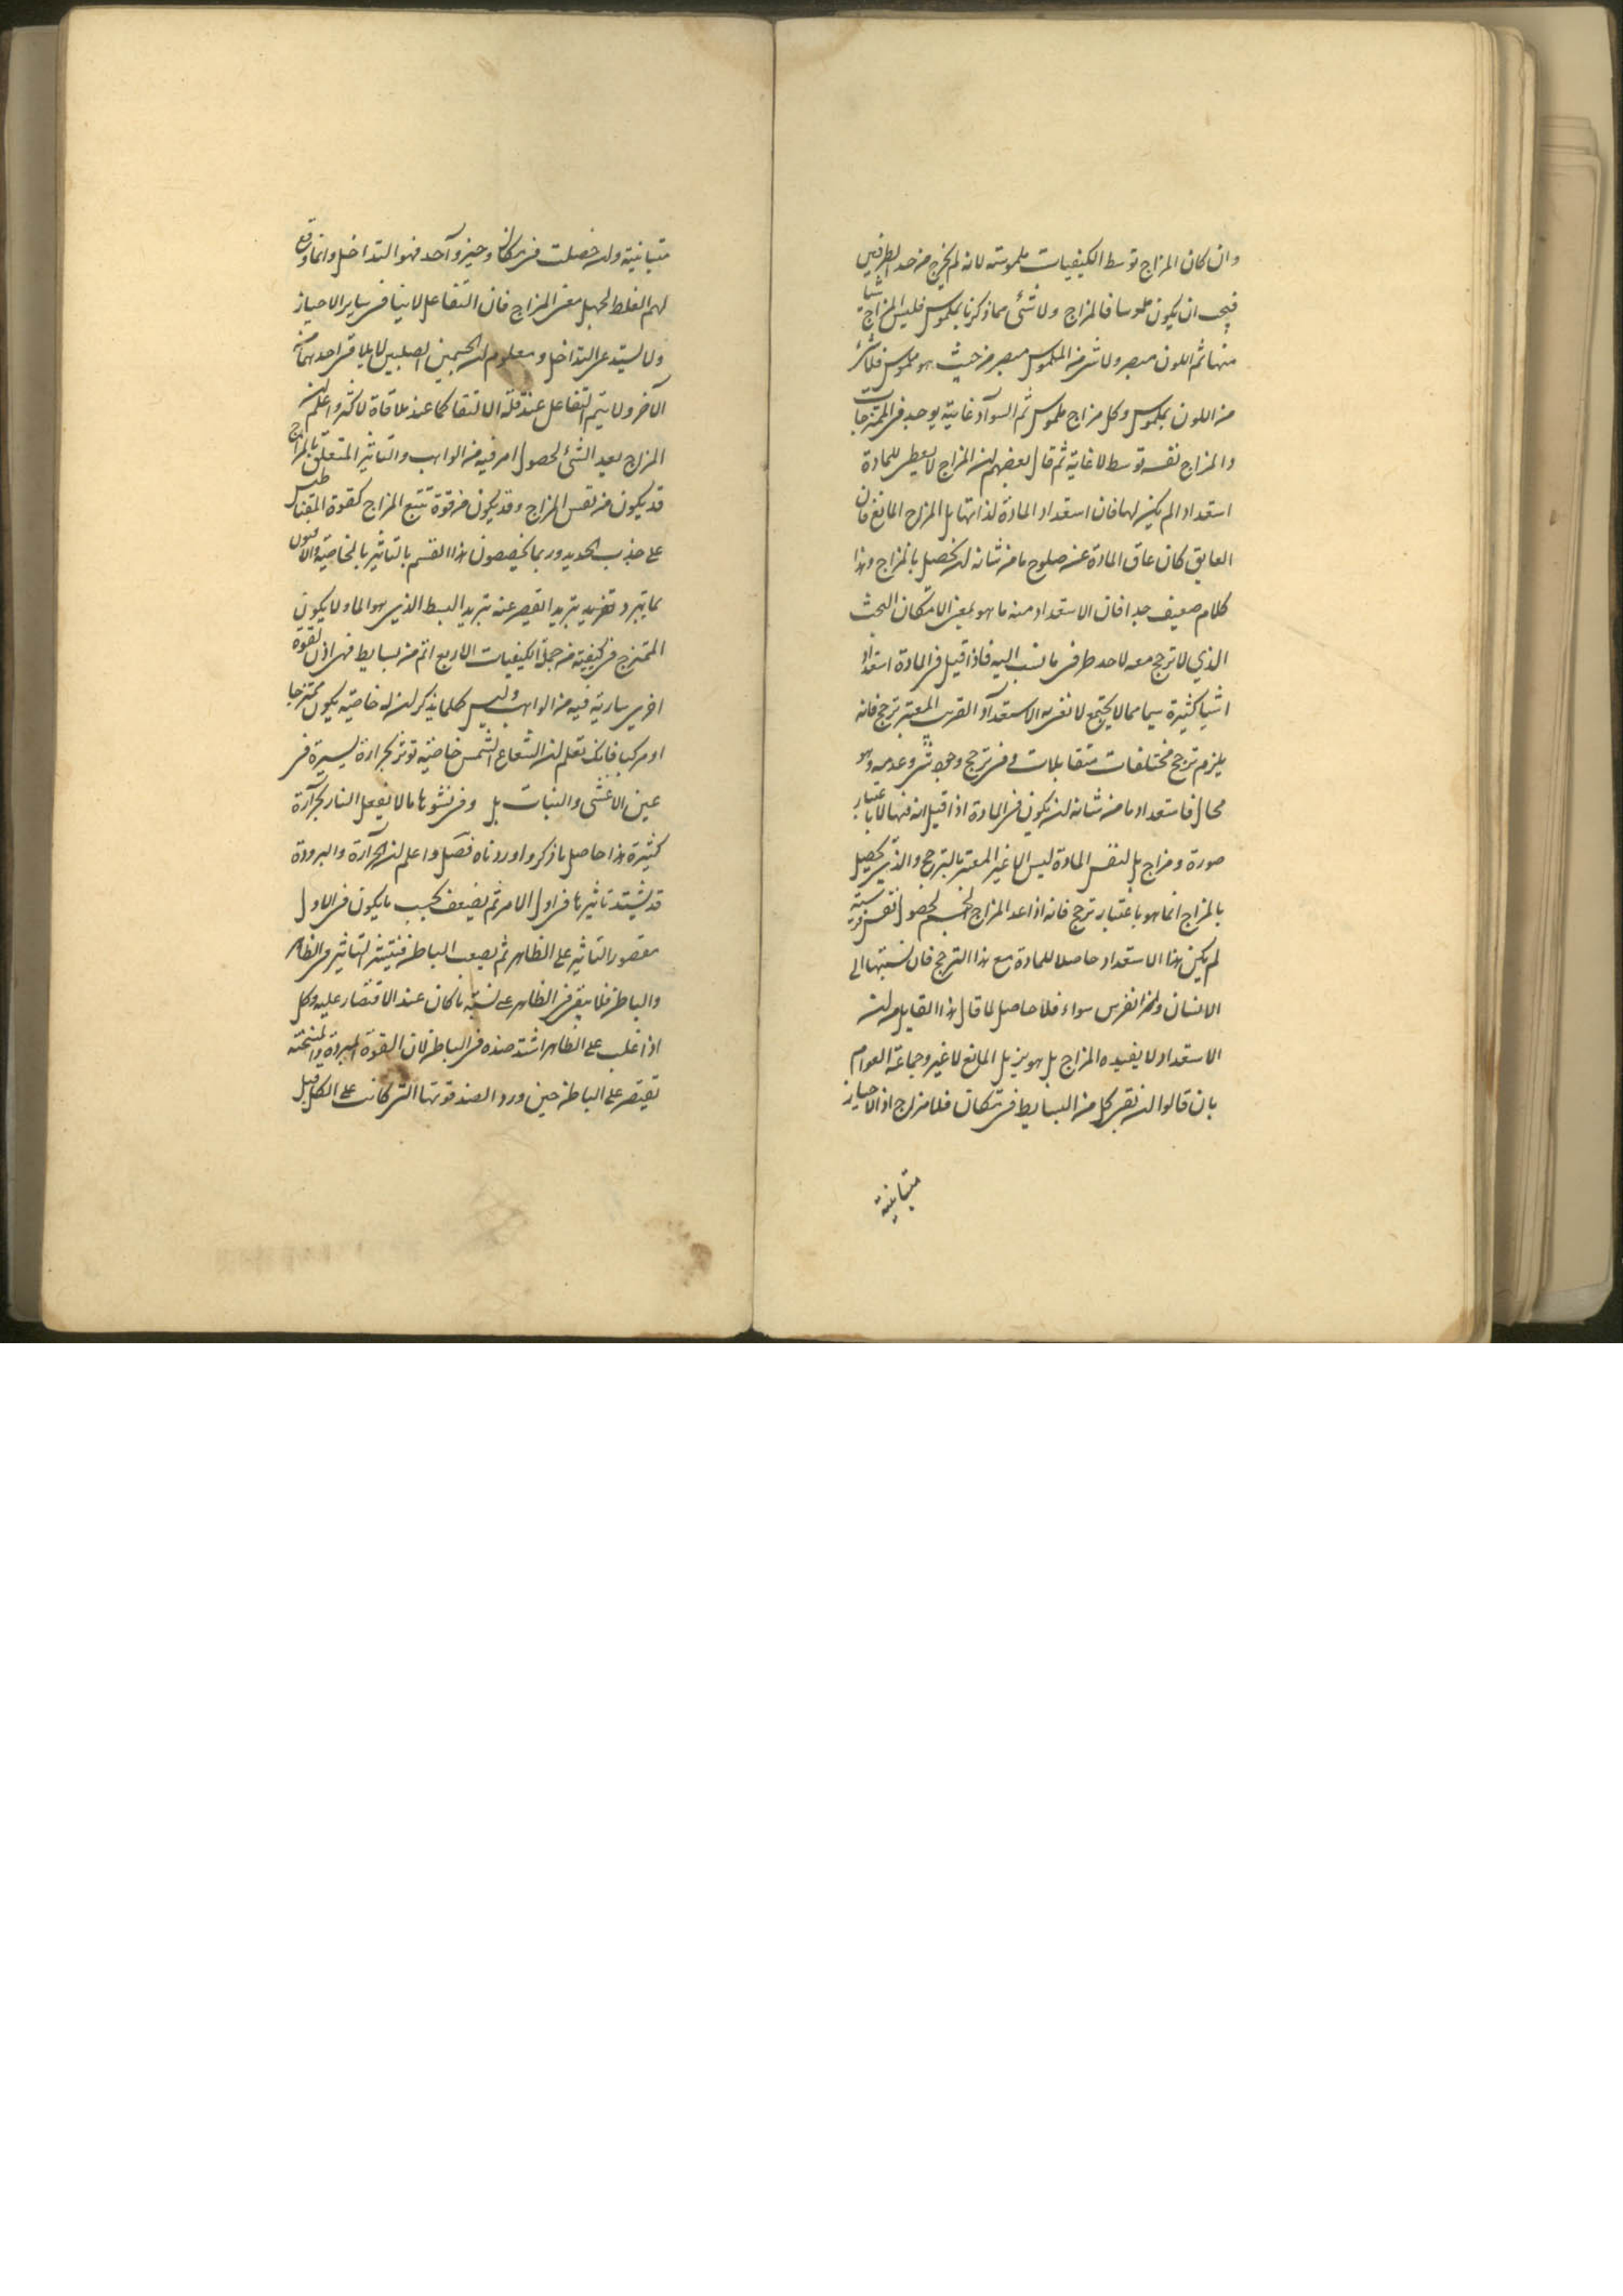 وان كان المزاج توسط الكيفيات ملموسته لانه لم يخرج من حد الطرفين
فيجب ان يكون ملموسا فالمزاج ولا شئ مما ذكرنا بملموس فليس المزاج شيأ
منها ثم اللون مبصر ولا شئ من الملموس مبصر من حيث هو ملموس فلا شئ
من اللون بملموس وكل مزاج ملموس ثم السواد غايته يوجد في الممتزجات
والمزاج نفسه توسط لا غاية ثم قال بعضهم ان المزاج لا يعطى للمادة
استعداد الم يكن لها فان استعداد المادة لذاتها بل المزاج المانع فان
العايق كان عاق المادة عن صلوح ما من شانه ان يحصل بالمزاج وهذا
كلام ضعيف جدا فان الاستعداد منه ما هو بمعنى الامكان البحت
الذي لا ترجح معه لاحد طرفى ما نسب اليه فاذا قيل فى المادة استعداد
اشيا كثيرة سيما مما لا يجتمع لا نعنى به الاستعداد القريب المعتبر بترجح فانه
يلزم ترجح مختلفات متقابلات وفى ترجح وجود شئ وعدمه وهو
محال فاستعداد ما من شانه ان يكون فى المادة اذا قيل انه فيها لا باعتبار
صورة ومزاج بل لنفس المادة ليس الا غير المعتبر بالترجح والذى يحصل
بالمزاج انما هو باعتبار ترجح فانه اذا عد المزاج الجسم لحصول نفس فرسية
لم يكن هذا الاستعداد حاصلا للمادة مع هذا الترجح فان نسبتها الى
الانسان والفرس سواء فلا حاصل لما قال هذا القايل من ان
الاستعداد لا يفيده المزاج بل هو يزيل المانع لا غير وجماعة العوام
بان قالوا ان بقى كل من البسايط فى مكان فلا مزاج اذ الاحياز
متباينة
متباينة وان حصلت فى مكان وحيز واحد فهو التداخل وانما وقع
لهم الغلط لجهل معنى المزاج فان التفاعل لا ينافى ساير الاحياز
ولا يستدعى التداخل ومعلوم ان الجسمين الصلبين لا يلاقى احدهما
الآخر ولا يتم التفاعل عند قلة الالتقا كما عند ملاقاة لاكثر واعلم ان
المزاج يعد الشئ لحصول امر فيه من الواهب والتاثير المتعلق بالمزاج
قد يكون من نفس المزاج وقد يكون من قوة تتبع المزاج كقوة المقناطيس
على جذب الحديد وربما يخصصون هذا القسم بالتاثير بالخاصية والافيون
بما يبرد تبريدا يقصر عنه تبريد البسيط الذى هو الماء ولا يكون
الممتزج فى كيفيته من جملة الكيفيات الاربع اتم من بسايط فهى اذن لقوة
اخرى سارية فيه من الواهب وليس كلما يذكر ان له خاصية يكون ممتزجا
او مركبا فانك تعلم ان الشعاع الشمس خاصية توثر بحرارة يسيرة فى
عين الاعشى والنبات بل وفى نشوها ما لا يفعل النار بحرارة
كثيرة هذا حاصل ما ذكر واوردناه فصل واعلم ان الحرارة والبرودة
قد يشتد تاثيرها فى اول الامر ثم يضعف بحسب ما يكون فى الاول
مقصور التاثير على الظاهر ثم يصيب الباطن فينتشر التاثير فى الظاهر
والباطن فلا يبقى فى الظاهر على نسبة ما كان عند الاقتصار عليه وكل
اذا غلب على الظاهر اشتد ضده فى الباطن لان القوة المبردة والمسخنة
تقتصر على الباطن حين ورد الضد قوتها التى كانت على الكل قبل